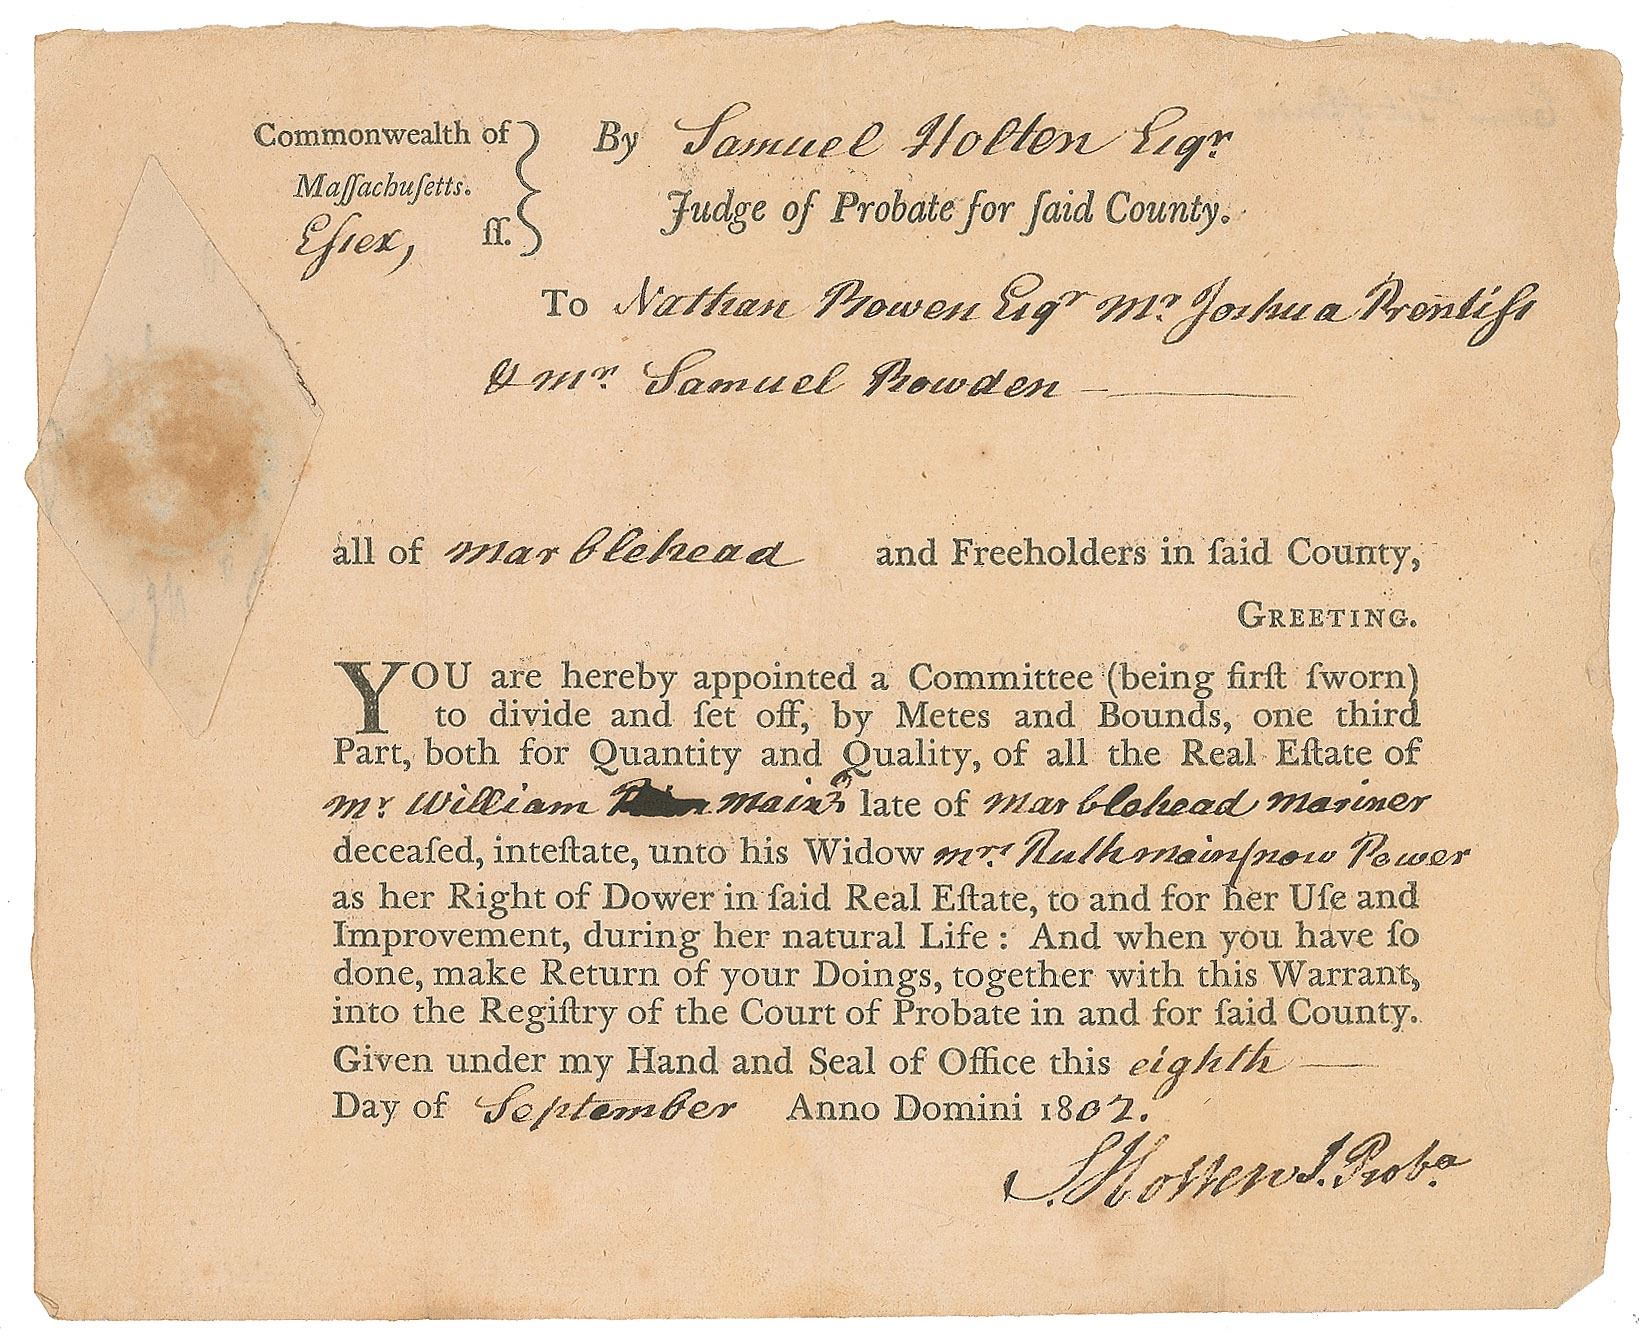 Commonwealth of
Maſſachuſetts.
Eſsex, ſſ.
By Samuel Holten Esqr
Judge of Probate for ſaid County.
To Nathan Bowen Esqr Mr. Joshua Prentiſs
& Mr. Samuel Bowden
all of Marblehead and Freeholders in ſaid County,
GREETING.
YOU are hereby appointed a Committee (being firſt ſworn)
to divide and ſet off, by Metes and Bounds, one third
Part, both for Quantity and Quality, of all the Real Eſtate of
Mr. William Main late of Marblehead Mariner
deceaſed, inteſtate, unto his Widow Mrs. Ruth Main (now Power
as her Right of Dower in ſaid Real Eſtate, to and for her Uſe and
Improvement, during her natural Life : And when you have ſo
done, make Return of your Doings, together with this Warrant,
into the Regiſtry of the Court of Probate in and for ſaid County.
Given under my Hand and Seal of Office this eighth
Day of September Anno Domini 1802.
S. Holten J. Proba.